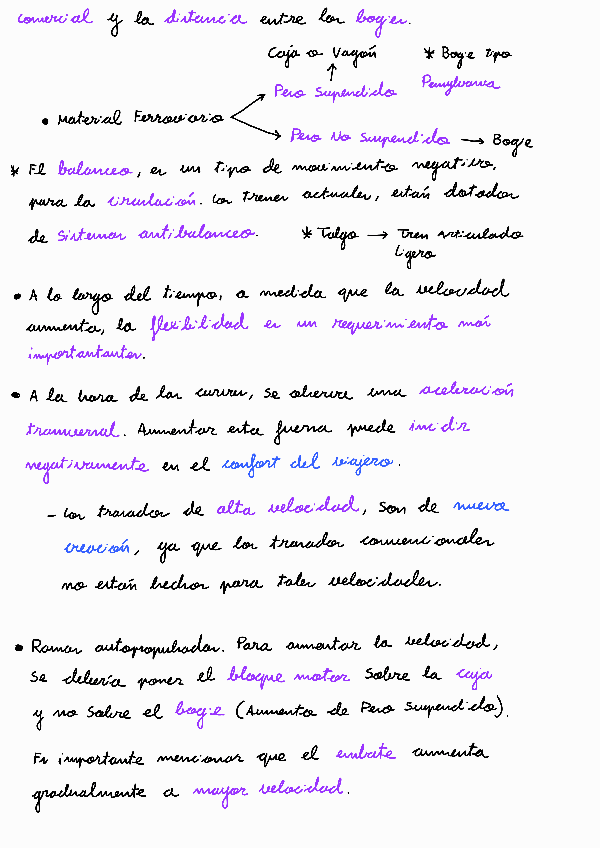 comercial y la distancia entre los bogies.
Caja o Vagón
* Bogie tipo
Pennsylvania
Peso Suspendido
• Material Ferroviario
Peso No Suspendido → Bogie
* El balanceo, es un tipo de movimiento negativo,
para la circulación. Los trenes actuales, están dotados
de Sistemas antibalanceo.
* Talgo → Tren Articulado
Ligero
• A lo largo del tiempo, a medida que la velocidad
aumenta, la flexibilidad es un requerimiento más
importantantes.
• A la hora de las curvas, se observa una aceleración
transversal. Aumentar esta fuerza puede incidir
negativamente en el confort del viajero.
- Los trazados de alta velocidad, son de nueva
creación, ya que los trazados convencionales
no están hechos para tales velocidades.
• Ramas autopropulsadas. Para aumentar la velocidad,
se debería poner el bloque motor sobre la caja
y no sobre el bogie (Aumento de Peso Suspendido).
Es importante mencionar que el embate aumenta
gradualmente a mayor velocidad.